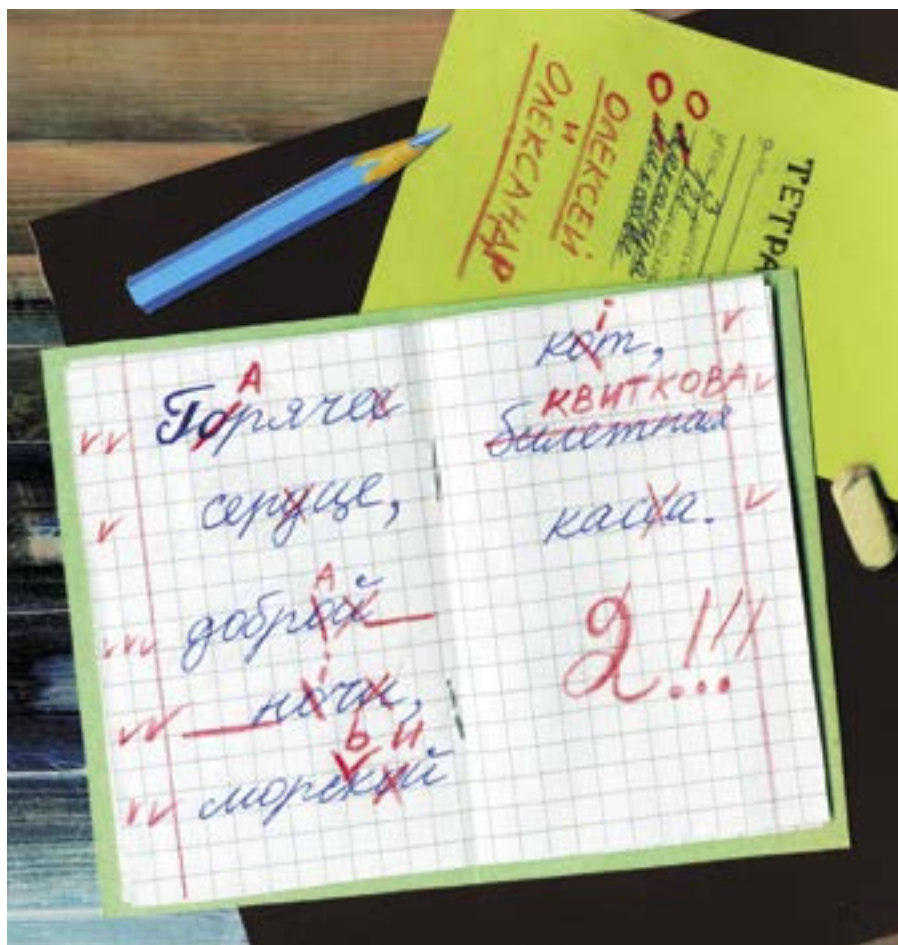 ОЛЕКСЕЙ
И
ОЛЕКСАНДР
О О
ТЕТРА
А
Горячее
сердце,
А
доброй
і
ночи,
Ь И
морский
і
кот,
КВИТКОВА
билетная
касса.
2!!!